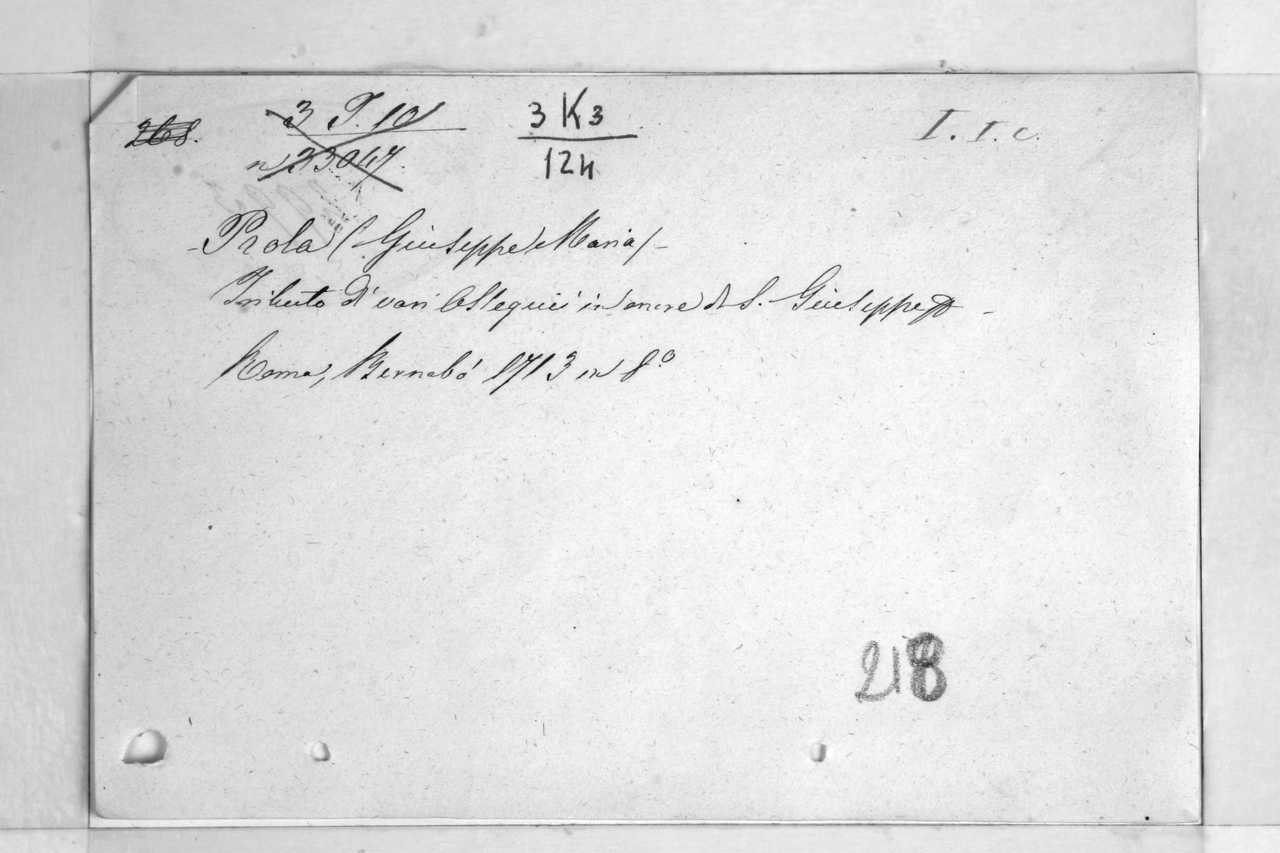 268.
3 T. 101
n 23047.
3 K 3
124
I. I. c.
- Prola (Giuseppe Maria) -
Tributo di vari Ossequii in onore di S. Giuseppe -
Roma, Bernabò 1713 in 8.°
218